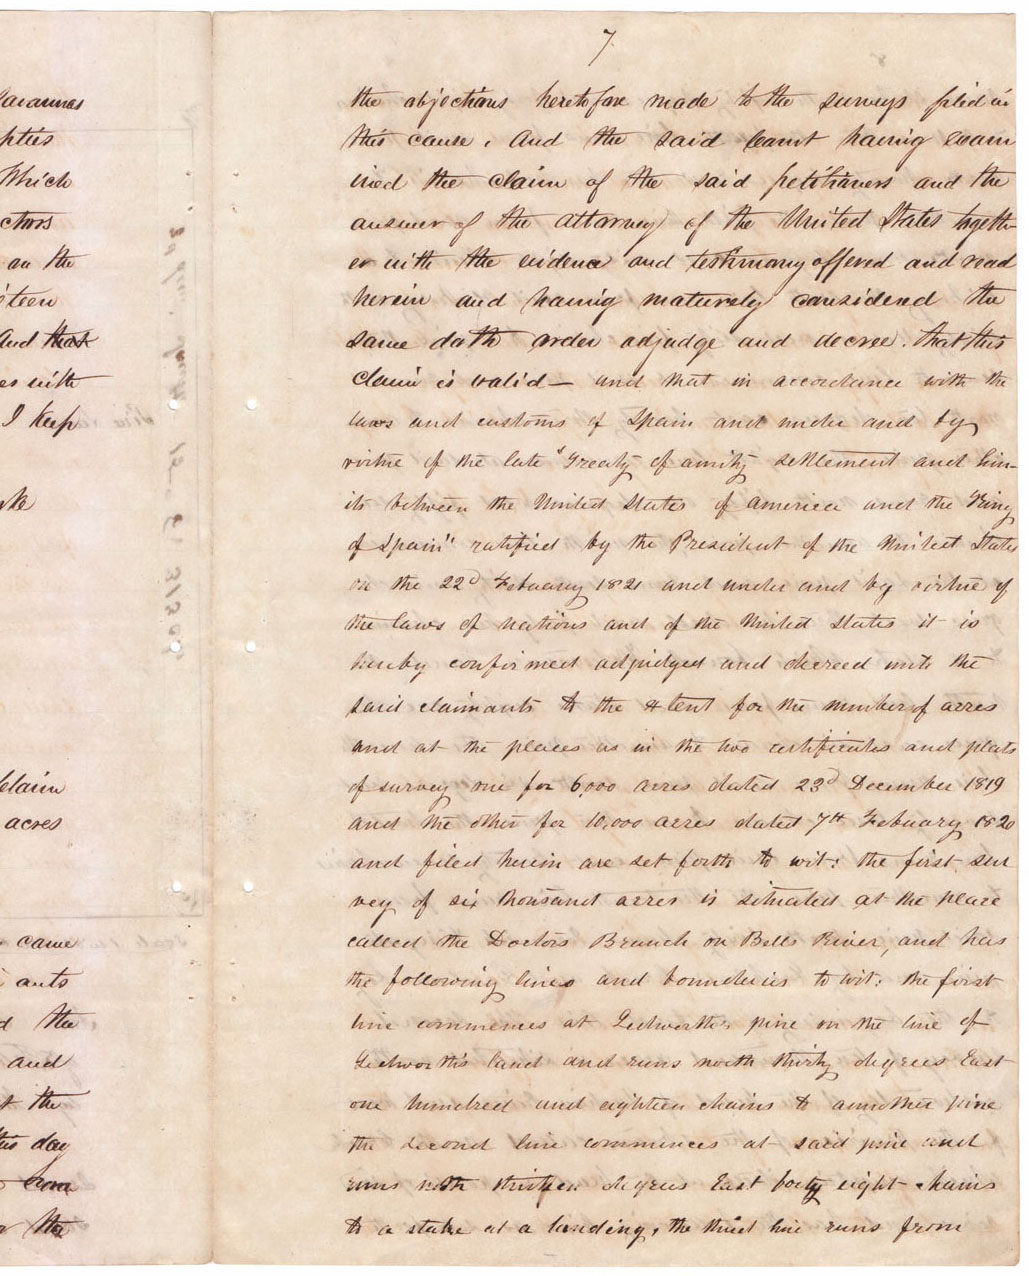 Savannas
pties
Which
ctors
on the
eteen
and that
es with
I keep
ke
Claim
acres
came
ants
d the
and
t the
this day
come
the
7
the objections heretofore made to the surveys filed in
this cause, And the said Court having exam
ined the claim of the said petitioners and the
answer of the attorney of the United States togeth-
er with the evidence and testimony offered and read
herein and having maturely considered the
same doth order adjudge and decree. that this
claim is valid — and that in accordance with the
laws and customs of Spain and under and by
virtue of the late "Treaty of amity settlement and lim-
its between the United States of America and the King
of Spain" ratified by the President of the United States
on the 22d February 1821 and under and by virtue of
the laws of nations and of the United States it is
hereby confirmed adjudged and decreed unto the
said claimants to the extent for the number of acres
and at the places as in the two certificates and plats
of survey one for 6,000 acres dated 23d December 1819
and the other for 10,000 acres dated 7th February 1820
and filed herein are set forth to wit: the first sur
vey of six thousand acres is situated at the place
called the Doctors Branch on Bells River, and has
the following lines and bounderies to wit: the first
line commences at Ledworths pine on the line of
Ledworth's land and runs north thirty degrees East
one hundred and eighteen chains to annother pine
the second line commences at said pine and
runs north thirteen degrees East forty eight chains
to a stake at a landing, the third line runs from